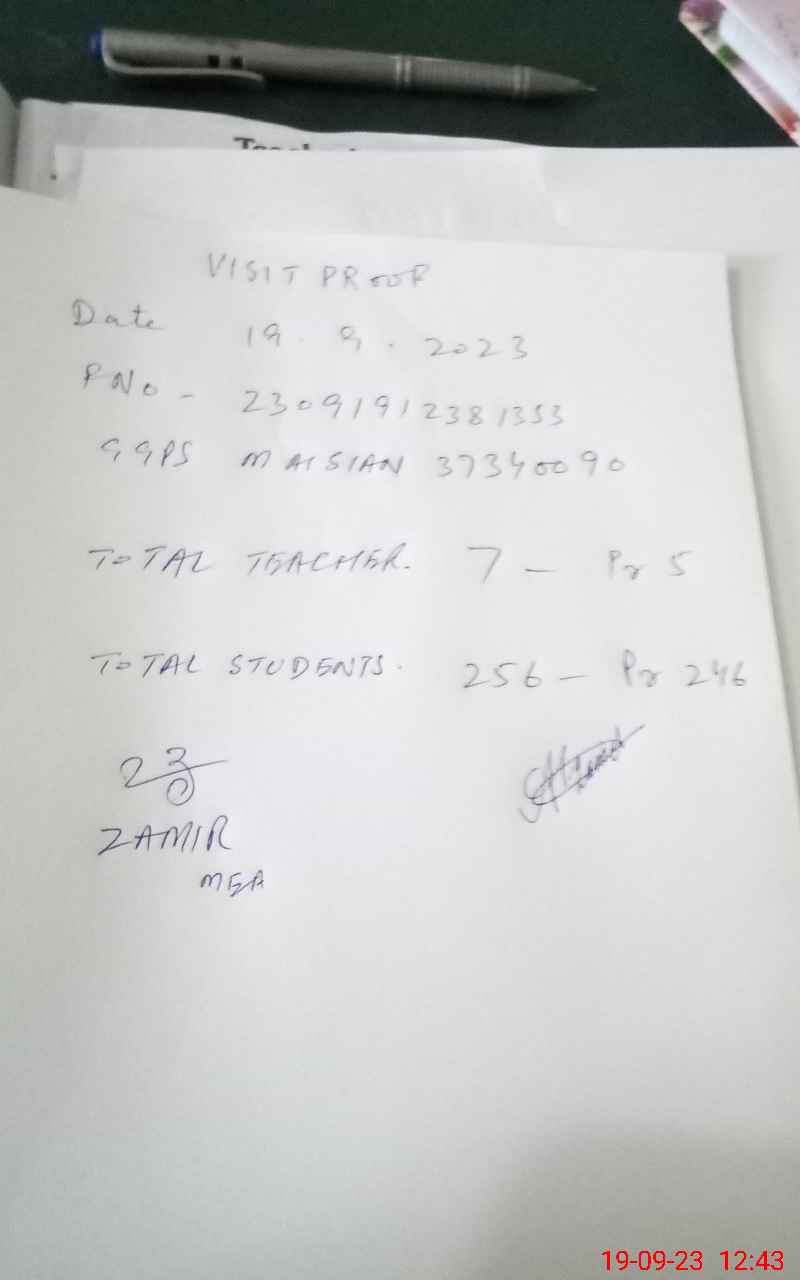 VISIT PROOF
Date 19.9.2023
PNo - 23091912381353
GGPS MAISIAN 37340090
TOTAL TEACHER. 7 - Pr 5
TOTAL STUDENTS. 256 - Pr 246
ZAMIR
MEA
19-09-23 12:43